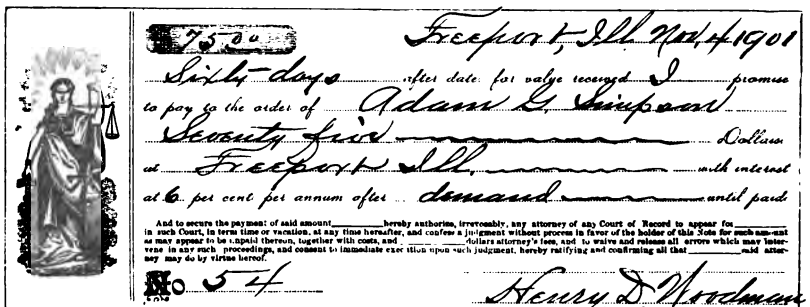 75 00
Freeport, Ill Nov, 4 1901
Sixty days after date for value received I promise
to pay to the order of Adam G. Simpson
Seventy five Dollars
at Freeport Ill. with interest
at 6 per cent per annum after demand until paid.
And to secure the payment of said amount hereby authorize, irrevocably, any attorney of any Court of Record to appear for
in such Court, in term time or vacation, at any time hereafter, and confess a judgment without process in favor of the holder of this Note for such amount
as may appear to be unpaid thereon, together with costs, and dollars attorney's fees, and to waive and release all errors which may inter-
vene in any such proceedings, and consent to immediate execution upon such judgment, hereby ratifying and confirming all that said attor-
ney may do by virtue hereof.
No 54
Henry D Woodman